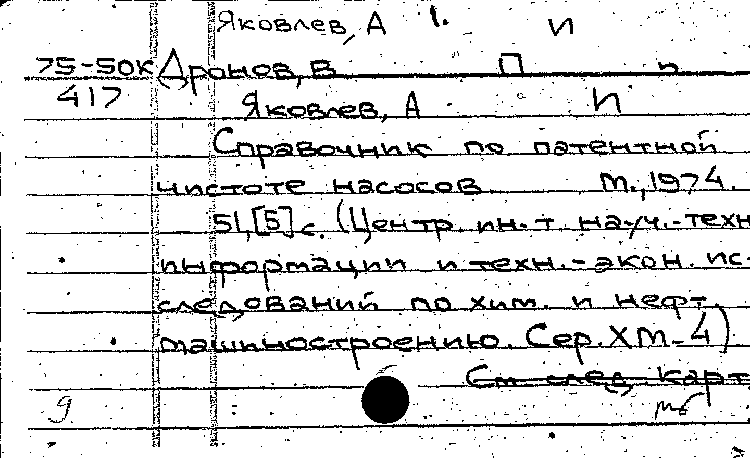 Яковлев, А 1. И
75-50К Дронов, В П
417 Яковлев, А И
Справочник по патентной
чистоте насосов. М., 1974.
51, [5] с. (Центр. ин-т науч.-техн
информации и техн.-экон. ис-
следований по хим. и нефт.
машиностроению. Сер. ХМ-4)
См след. карт
9